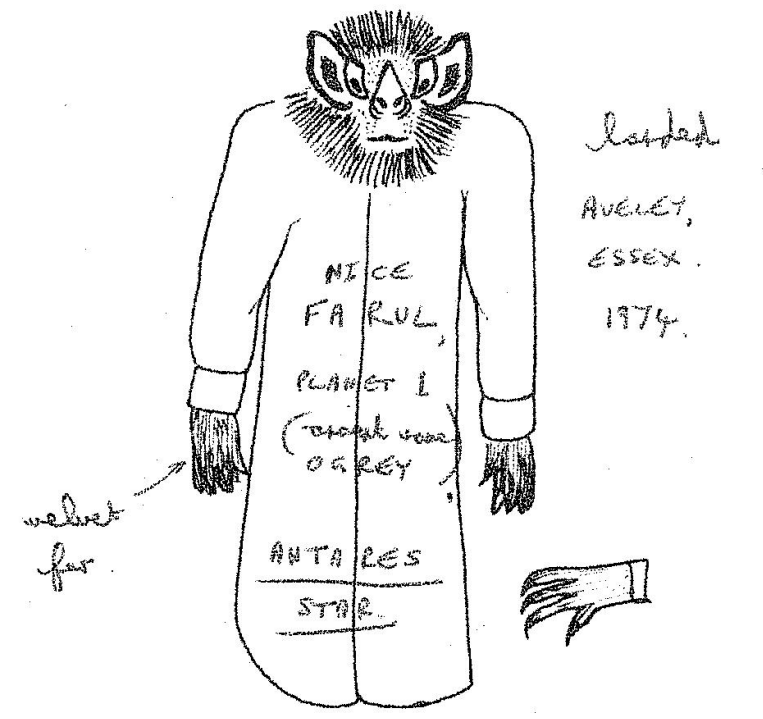 landed
AVELEY,
ESSEX.
1974.
NICE
FARUL,
PLANET 1
OGREY
ANTARES
STAR
velvet
fur.